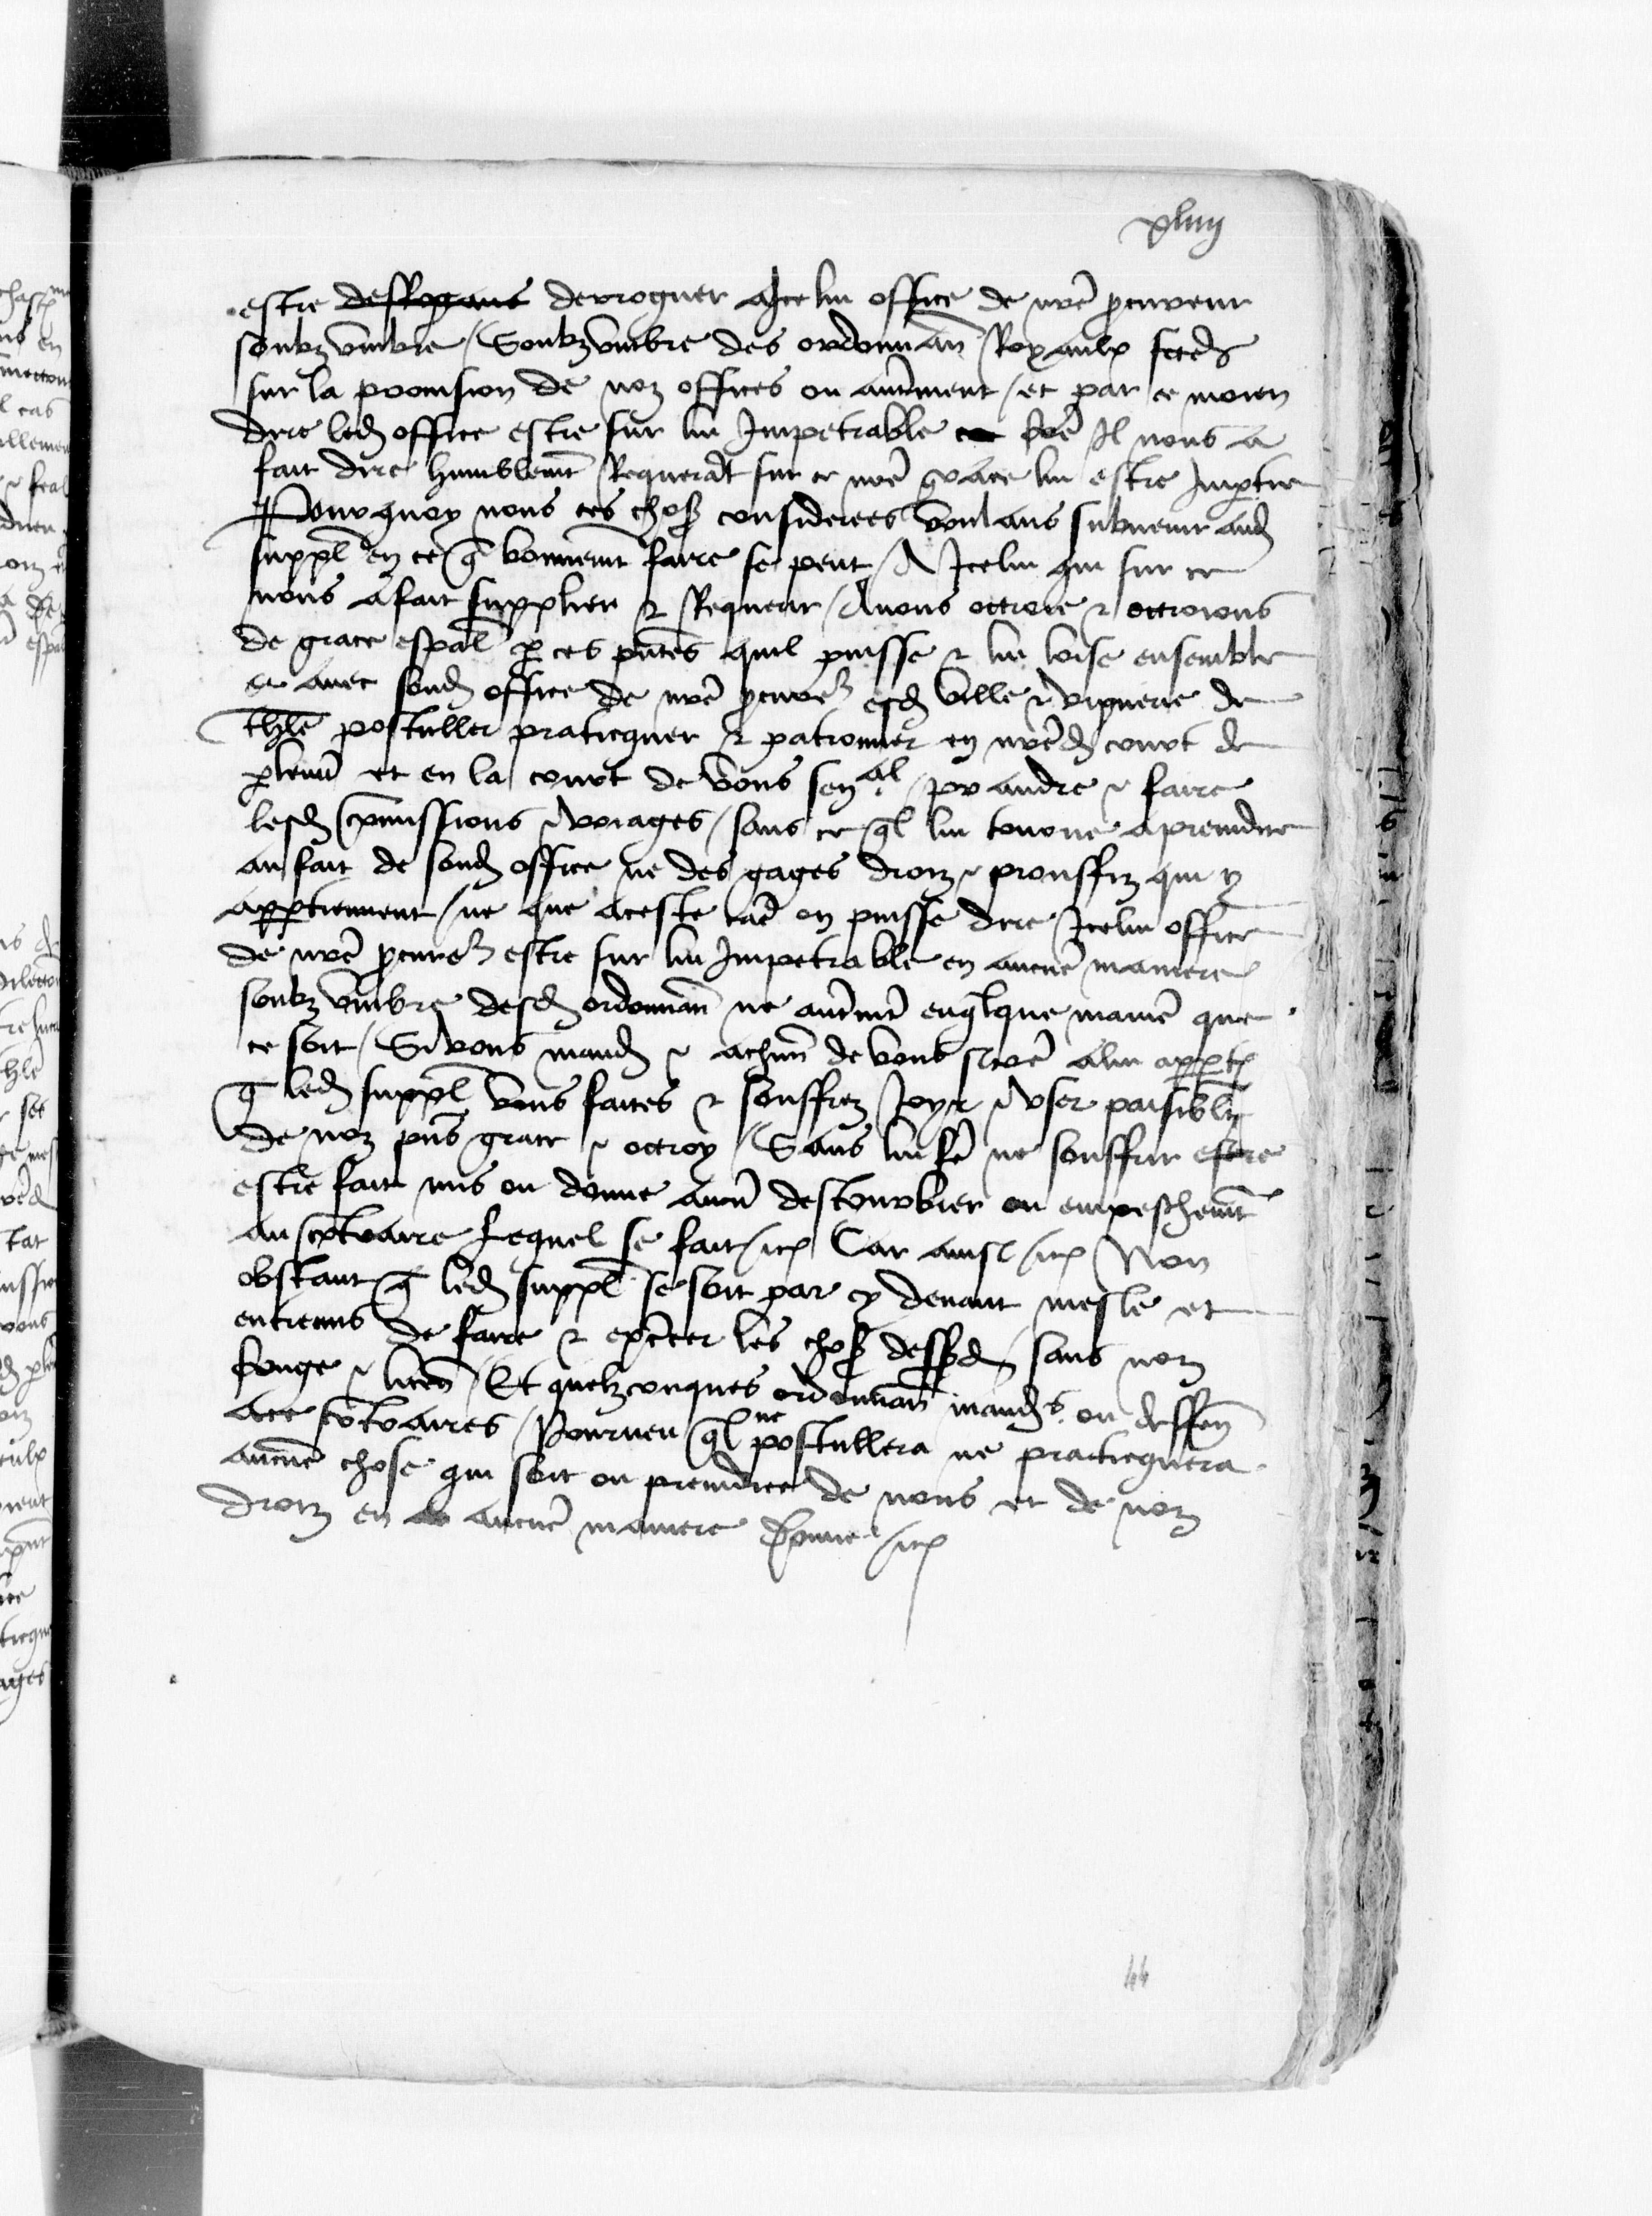 xliiij
estre desrogant derroguer a Icelui office de nre pcureur
soubz umbre / Soubz umbre des ordonnan Royaulx sceeds
sur la provision de noz offices ou autrment / et par ce moien
dire led office estre sur lui Impetrable Il nous a
fait dire humblemt Requerat sur ce nre grace lui estre Imptie
Pourquoy nous ces choses considerees voulans subvenir aud
suppl en ce q bonnemt faire se peut / A Icelui qui sur ce
nous a fait supplier & Requerir / Avons octroie & octroions
de grace espal p ces pntes quil puisse & lui loise ensemble
et avec sond office de nre pcureur esd ville & viguerie de
thle postuller praticquer & patroner en nred court de
plemt et en la court de vous senal / prandre & faire
lesd comissions & voiages / sans ce ql lui tourne a preiudice
au fait de sond office ne des gages droiz & prouffiz qui y
apptiennent / ne que a ceste cae on puisse dire Icelui office
de nre pcureur estre sur lui Impetrable en aucue maniere
soubz umbre desd ordonnan ne autremt en qlque manie que
ce soit / Si vous mand & a chun de vous si coe a lui apptt
q led suppl vous faites & souffrez Joyr & user paisiblt
de noz pns grace & octroy / Sans lui fe ne souffrir estre
estre fait mis ou donne aucu destourbier ou empeschemt
au contraire Lequel se fait / etc Car ainsi / etc Non
obstant q led suppl se soit par cy devant mesle et
entremis de faire & excter les choses dessusd sans noz
conge & licen / Et quelzconques ordonnan mands ou deffen
a ce contraires / Pourveu ql ne postullera ne practiquera
aucue chose qui soit ou preiudice de nous et de noz
droiz en aucue maniere Donne / etc
44